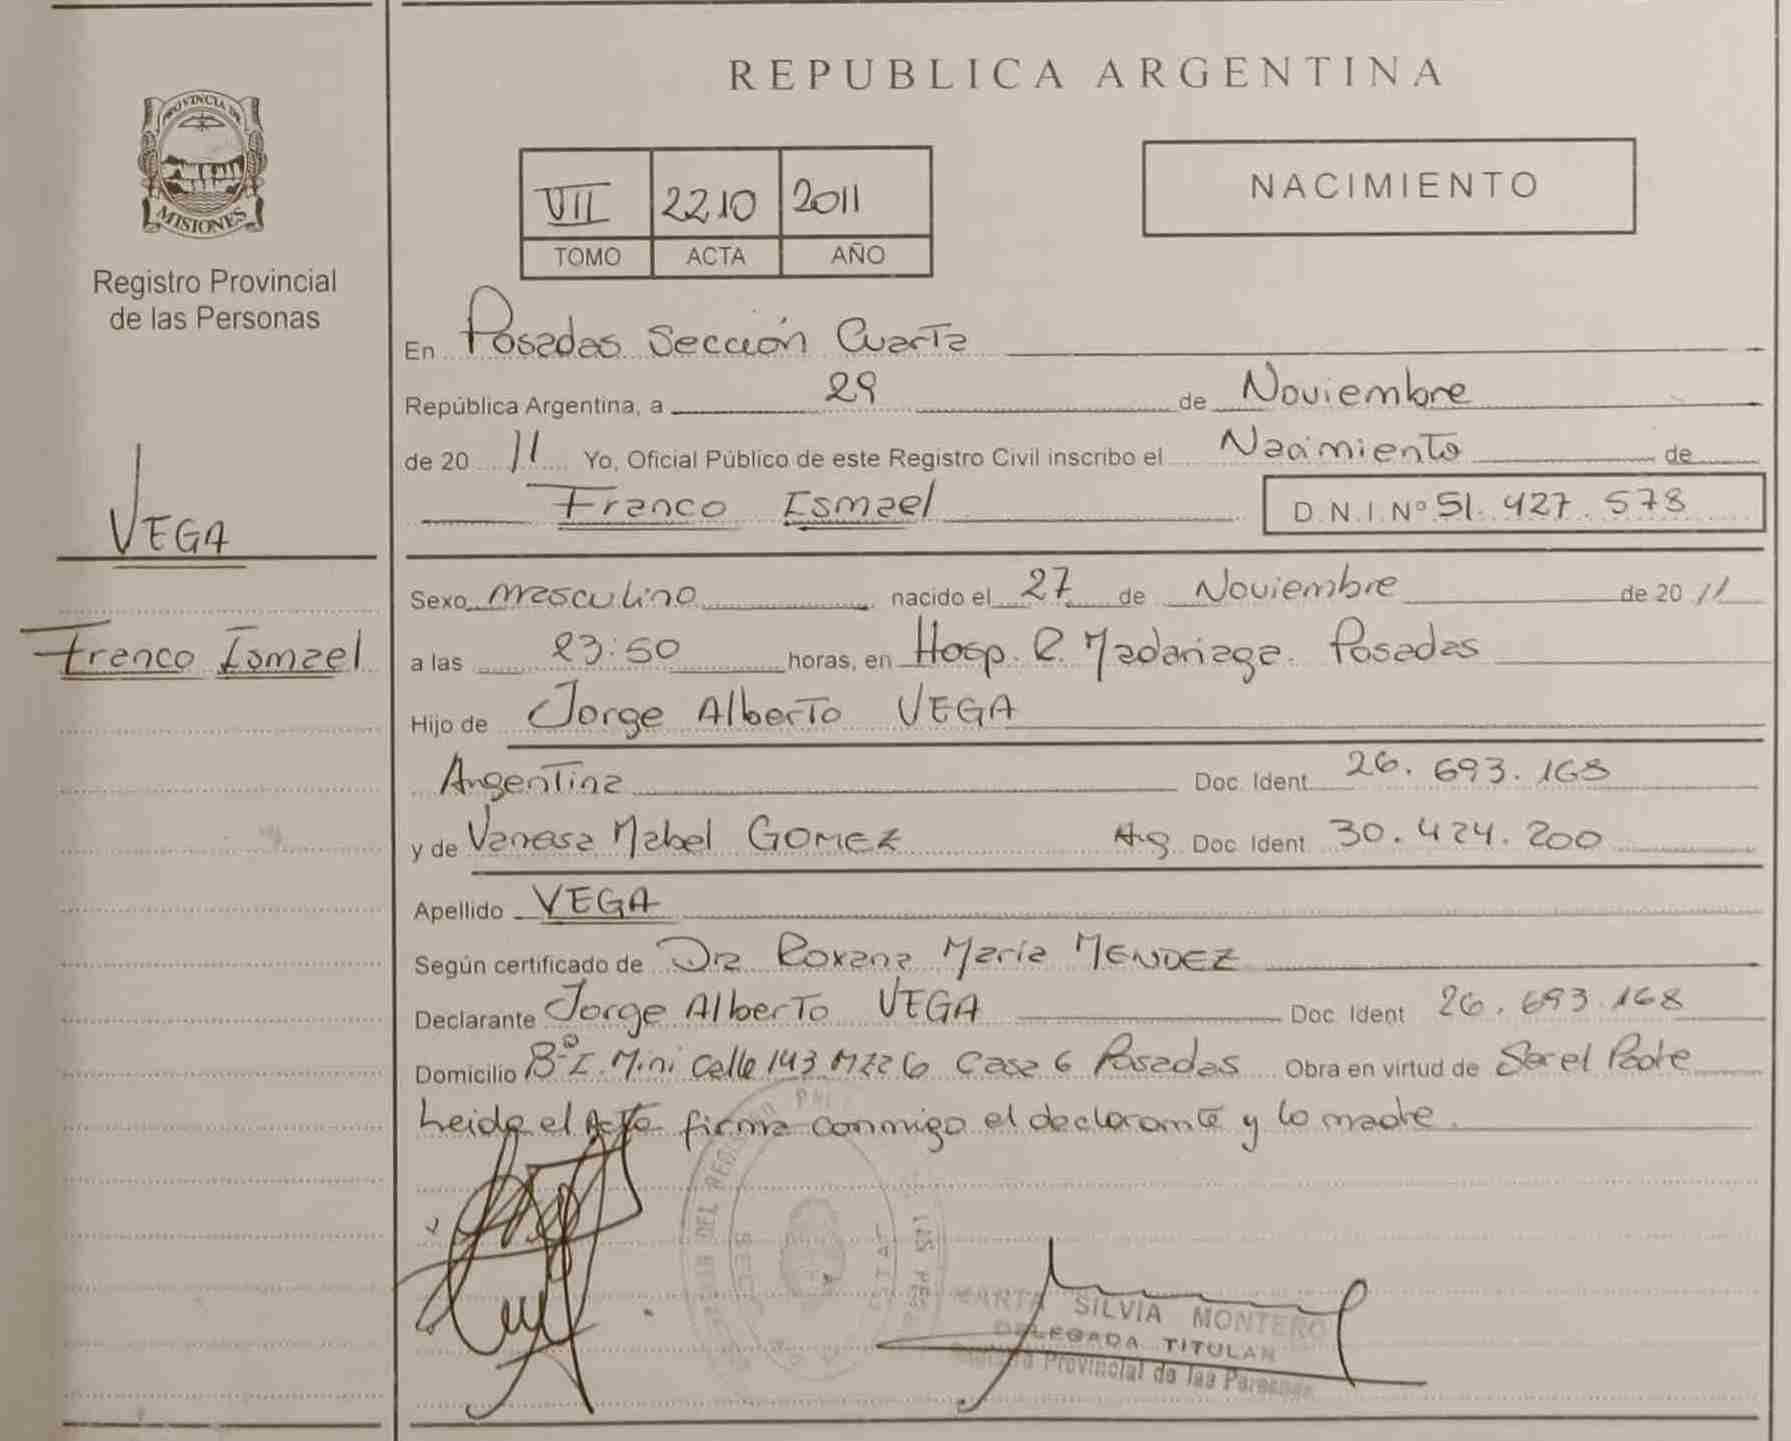 PROVINCIA DE
MISIONES
Registro Provincial
de las Personas
VEGA
Franco Ismael
REPUBLICA ARGENTINA
VII 2210 2011
TOMO ACTA AÑO
NACIMIENTO
En Posadas Sección Cuarta
República Argentina, a 29 de Noviembre
de 20 11 Yo, Oficial Público de este Registro Civil inscribo el Nacimiento de
Franco Ismael D.N.I. Nº 51.427.578
Sexo masculino nacido el 27 de Noviembre de 20 11
a las 23:50 horas, en Hosp. R. Madariaga. Posadas
Hijo de Jorge Alberto VEGA
Argentina Doc. Ident. 26.693.168
y de Vanesa Mabel GOMEZ Arg Doc Ident 30.424.200
Apellido VEGA
Según certificado de Dra Roxana Maria MENDEZ
Declarante Jorge Alberto VEGA Doc. Ident 26.693.168
Domicilio Bº I. Mini Calle 143 Mza 6 Casa 6 Posadas Obra en virtud de Ser el Padre
Leida el Acta firma conmigo el declarante y la madre.
MARTA SILVIA MONTERO
DELEGADA TITULAR
Registro Provincial de las Personas